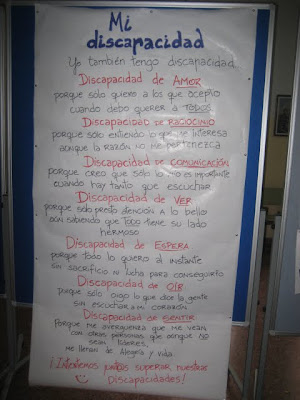 Mi
discapacidad
Yo también tengo discapacidad
Discapacidad de AMOR
porque sólo quiero a los que acepto
cuando debo querer a TODOS
Discapacidad de RACIOCINIO
porque sólo entiendo lo que me interesa
aunque la razón no me pertenezca
Discapacidad de COMUNICACIÓN
porque creo que sólo lo mío es importante
cuando hay tanto que escuchar
Discapacidad de VER
porque sólo presto atención a lo bello
aún sabiendo que TODO tiene su lado
hermoso
Discapacidad de ESPERA
porque todo lo quiero al instante
sin sacrificio ni lucha para conseguirlo
Discapacidad de OÍR
porque sólo oigo lo que dice la gente
sin escuchar a mi corazón
Discapacidad de SENTIR
Porque me avergüenza que me vean
con otras personas que aunque no
sean líderes,
me llenan de Alegría y vida
¡Intentemos juntos superar nuestras
Discapacidades!